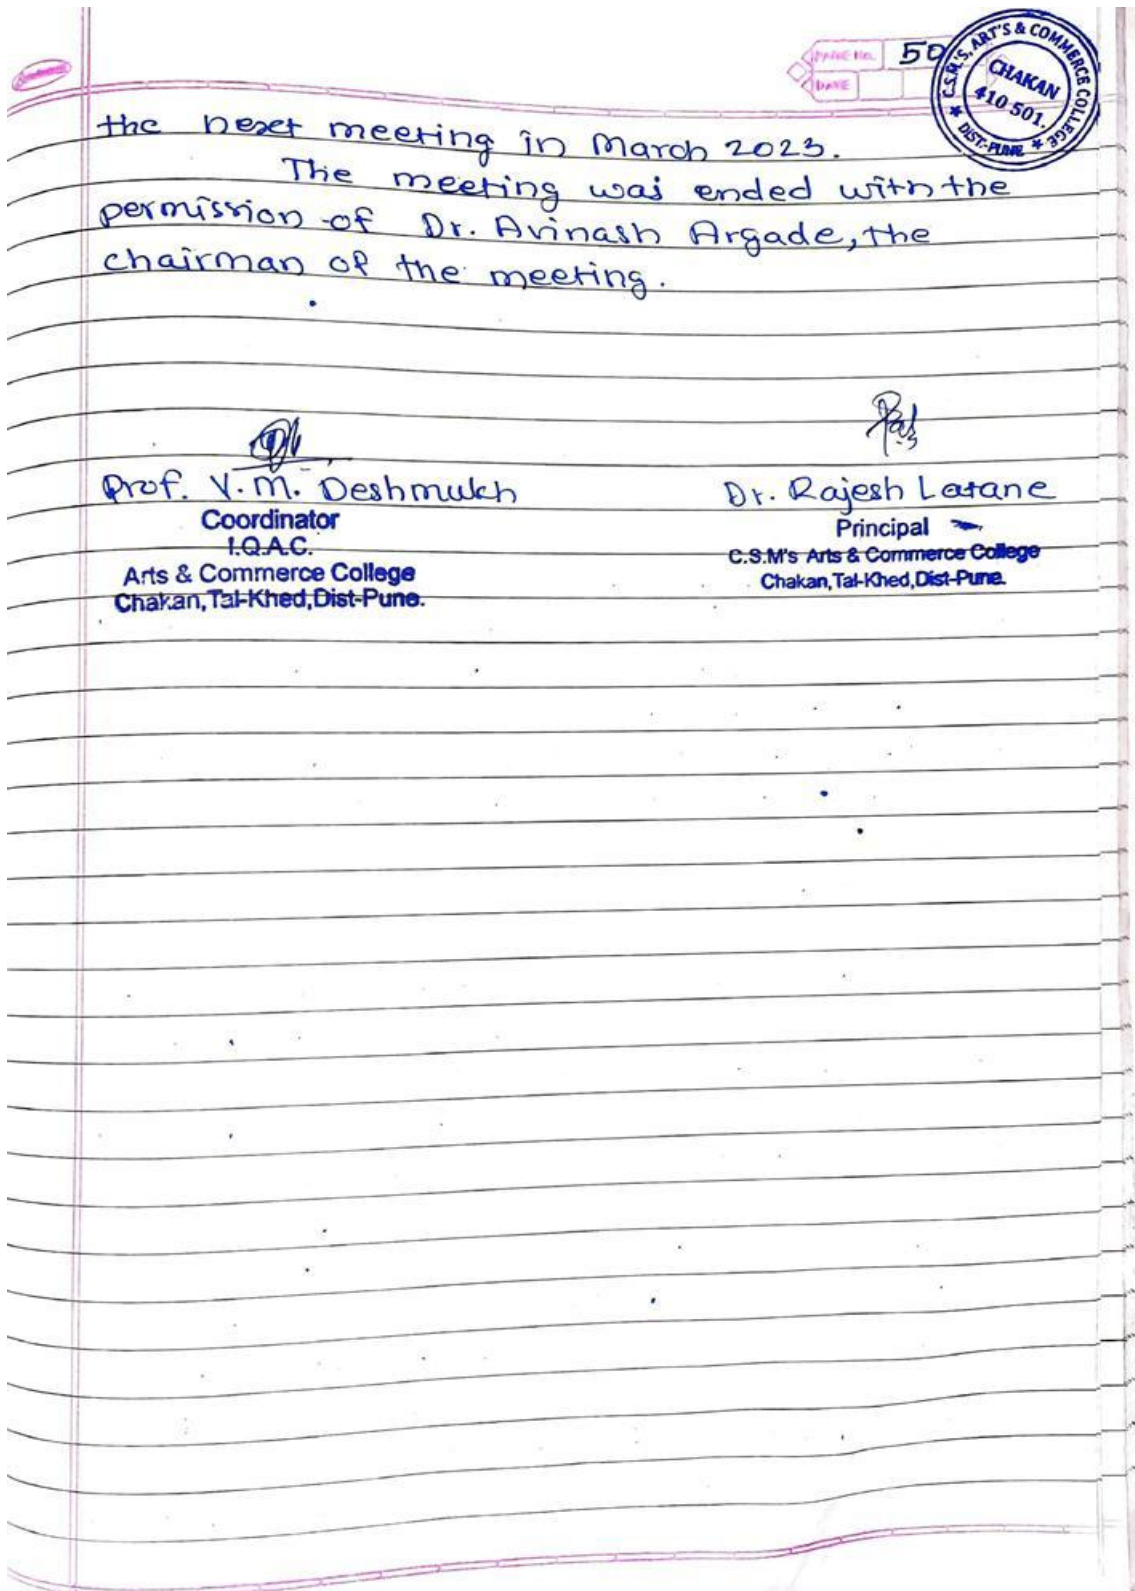 PAGE No. 50
DATE
C.S.M'S. ART'S & COMMERCE COLLEGE
CHAKAN
410 501.
DIST.-PUNE
the next meeting in March 2023.
The meeting was ended with the
permission of Dr. Avinash Argade, the
chairman of the meeting.
Prof. V.M. Deshmukh
Coordinator
I.Q.A.C.
Arts & Commerce College
Chakan, Tal-Khed, Dist-Pune.
Dr. Rajesh Latane
Principal
C.S.M's Arts & Commerce College
Chakan, Tal-Khed, Dist-Pune.